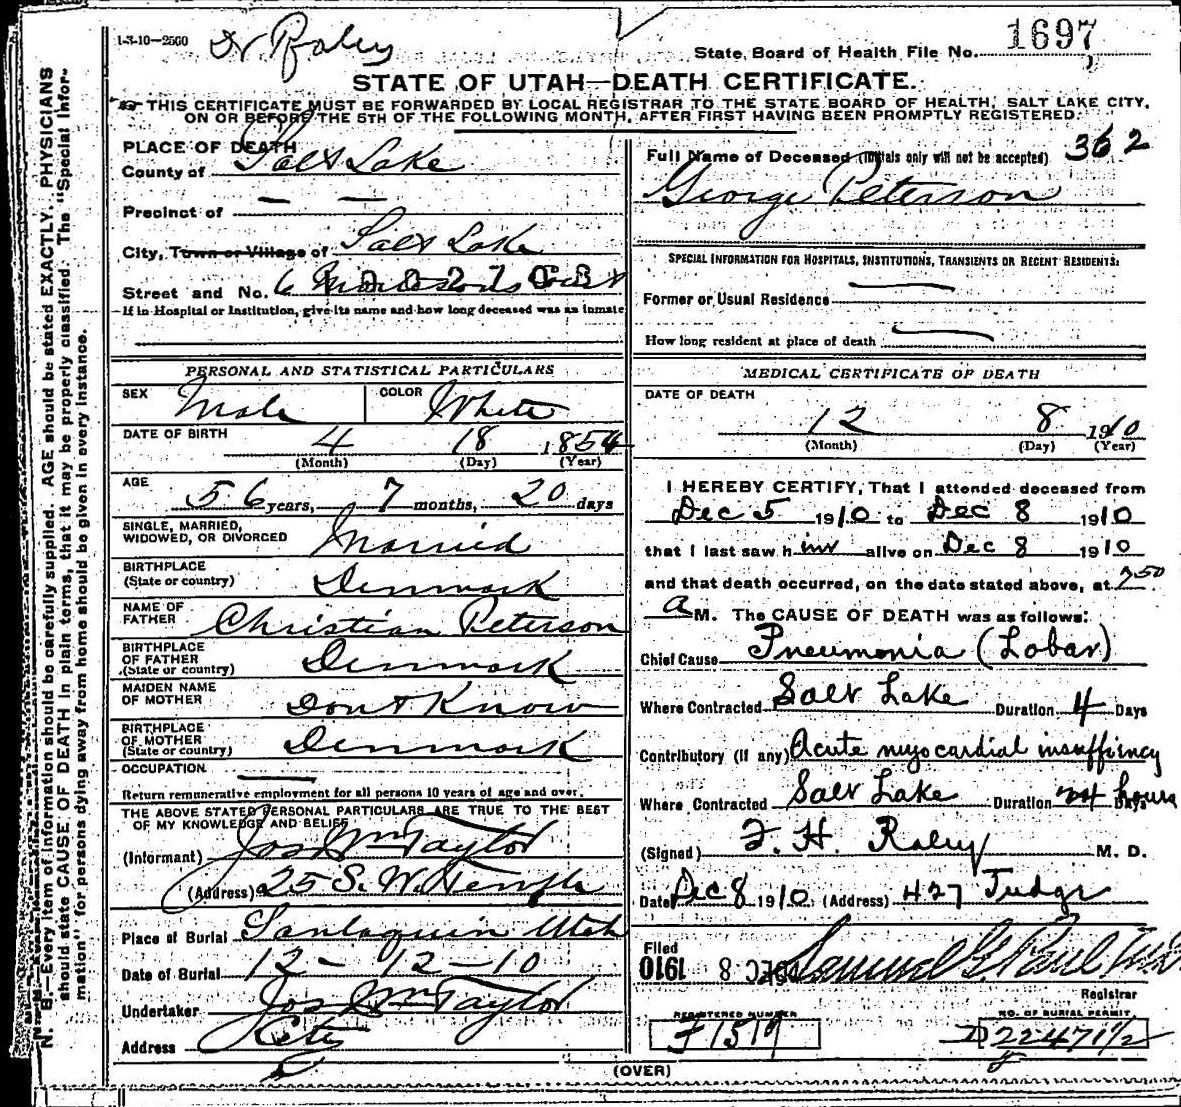 1-3-10—2500
Dr Raley
State Board of Health File No. 1697
STATE OF UTAH—DEATH CERTIFICATE.
THIS CERTIFICATE MUST BE FORWARDED BY LOCAL REGISTRAR TO THE STATE BOARD OF HEALTH, SALT LAKE CITY,
ON OR BEFORE THE 5TH OF THE FOLLOWING MONTH, AFTER FIRST HAVING BEEN PROMPTLY REGISTERED.
N. B.—Every item of information should be carefully supplied. AGE should be stated EXACTLY. PHYSICIANS
should state CAUSE OF DEATH in plain terms, that it may be properly classified. The "Special Infor-
mation" for persons dying away from home should be given in every instance.
PLACE OF DEATH
County of Salt Lake
Precinct of — —
City, Town or Village of Salt Lake
Street and No. 6
If in Hospital or Institution, give its name and how long deceased was an inmate
PERSONAL AND STATISTICAL PARTICULARS
SEX Male COLOR White
DATE OF BIRTH 4 18 1854
(Month) (Day) (Year)
AGE
56 years, 7 months, 20 days
SINGLE, MARRIED,
WIDOWED, OR DIVORCED Married
BIRTHPLACE
(State or country) Denmark
NAME OF
FATHER Christian Peterson
BIRTHPLACE
OF FATHER
(State or country) Denmark
MAIDEN NAME
OF MOTHER Dont Know
BIRTHPLACE
OF MOTHER
(State or country) Denmark
OCCUPATION —
Return remunerative employment for all persons 10 years of age and over.
THE ABOVE STATED PERSONAL PARTICULARS ARE TRUE TO THE BEST
OF MY KNOWLEDGE AND BELIEF
(Informant) Jos Wm Taylor
(Address) 25 S. W. Temple
Place of Burial Santaquin Utah
Date of Burial 12 — 12 — 10
Undertaker Jos Wm Taylor
Address City
Full Name of Deceased (Initials only will not be accepted) 362
George Peterson
SPECIAL INFORMATION FOR HOSPITALS, INSTITUTIONS, TRANSIENTS OR RECENT RESIDENTS:
Former or Usual Residence —
How long resident at place of death —
MEDICAL CERTIFICATE OF DEATH
DATE OF DEATH
12 8 1910
(Month) (Day) (Year)
I HEREBY CERTIFY, That I attended deceased from
Dec 5 1910 to Dec 8 1910
that I last saw him alive on Dec 8 1910
and that death occurred, on the date stated above, at 7 50
a M. The CAUSE OF DEATH was as follows:
Chief Cause Pneumonia (Lobar)
Where Contracted Salt Lake Duration 4 Days
Contributory (if any) Acute myocardial insuffiency
Where Contracted Salt Lake Duration 24 Days hours
(Signed) F. H. Raley M. D.
Date Dec 8 1910 (Address) 427 Judge
Filed
DEC 8 1910 Samuel G Paul
Registrar
REGISTERED NUMBER
F1519
NO. OF BURIAL PERMIT
D22471½
(OVER)